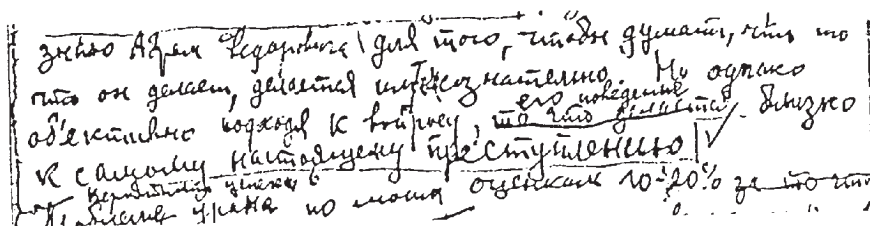 знаю Абрам Федоровича для того, чтобы думать, что то
что он делает, делается им сознательно. Но однако
его поведение
об'ективно подходя к вопросу, то что делается близко
к самому настоящему преступлению
успеха в
урана по моим оценкам 10-20% за то что